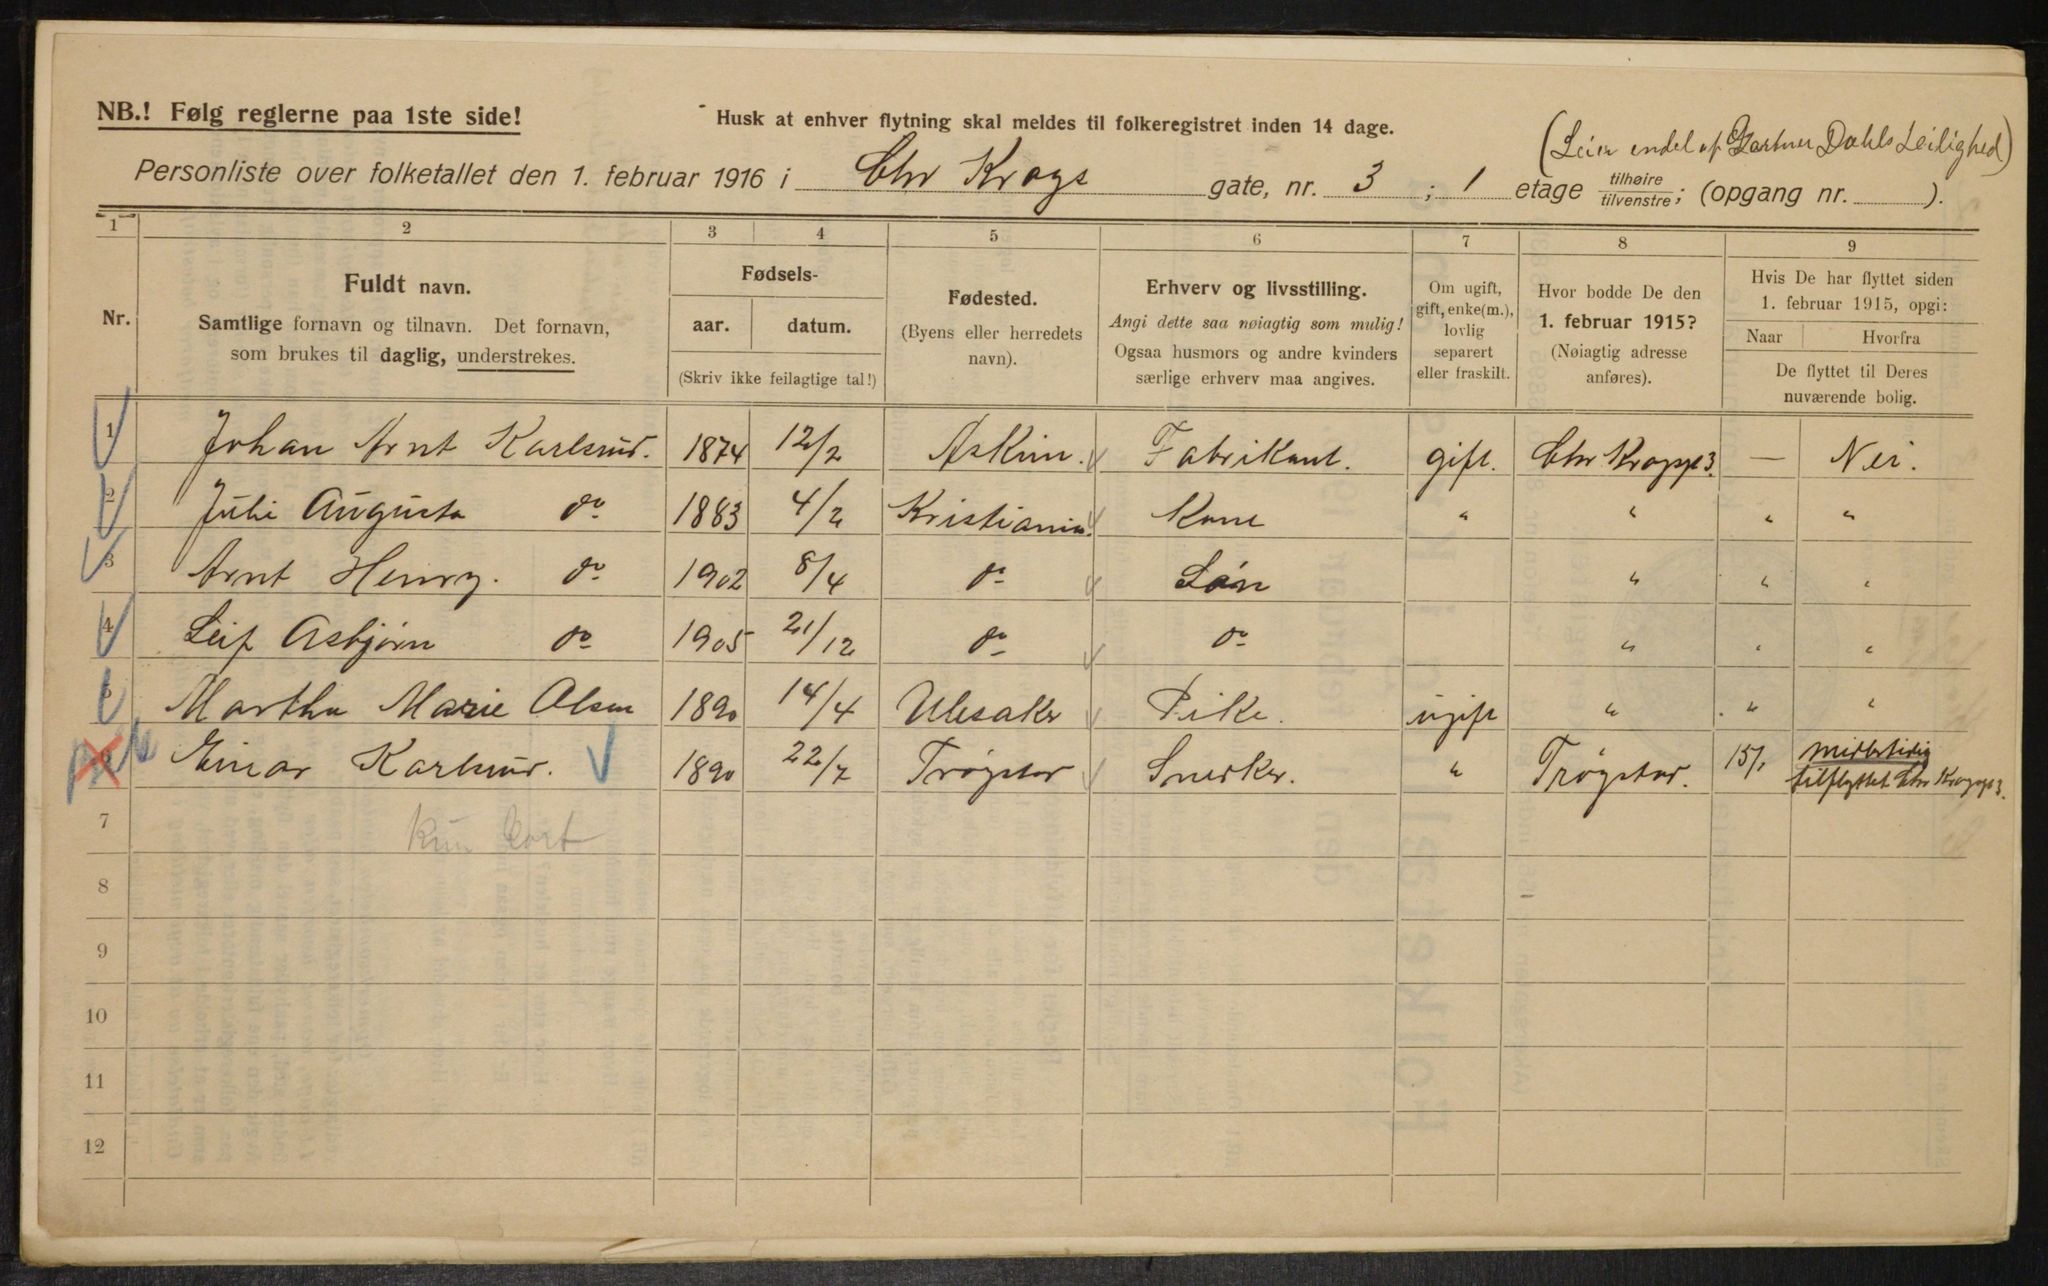 NB.! Følg reglerne paa 1ste side!
Husk at enhver flytning skal meldes til folkeregistret inden 14 dage.
(Leier endel af Gartner Dæhls Leilighed)
Personliste over folketallet den 1. februar 1916 i Chr Krogs gate, nr. 3 ; 1 etage tilhøire/tilvenstre; (opgang nr. ).
1 2 3 4 5 6 7 8 9
Nr.
Fuldt navn.
Samtlige fornavn og tilnavn. Det fornavn,
som brukes til daglig, understrekes.
Fødsels-
aar. datum.
(Skriv ikke feilagtige tal!)
Fødested.
(Byens eller herredets
navn).
Erhverv og livsstilling.
Angi dette saa nøiagtig som mulig!
Ogsaa husmors og andre kvinders
særlige erhverv maa angives.
Om ugift,
gift, enke(m.),
lovlig
separert
eller fraskilt.
Hvor bodde De den
1. februar 1915?
(Nøiagtig adresse
anføres).
Hvis De har flyttet siden
1. februar 1915, opgi:
Naar Hvorfra
De flyttet til Deres
nuværende bolig.
1 Johan Arnt Karlsrud. 1874 12/2 Askim. Fabrikant. gift. Chr Kroggt 3. — Nei.
2 Julie Augusta do 1883 4/2 Kristiania. Kone " " " "
3 Arnt Henry. do 1902 8/4 do Søn " " "
4 Leif Asbjørn do 1905 21/12 do do " " "
5 Martha Marie Olsen 1890 14/4 Ulesaker Pike. ugift " " "
6 Einar Karlsrud. 1890 22/7 Trøgstad Snedker. " Trøgstad. 15/1 midlertidig
tilflyttet Chr Kroggt 3.
7 kun kort
8
9
10
11
12